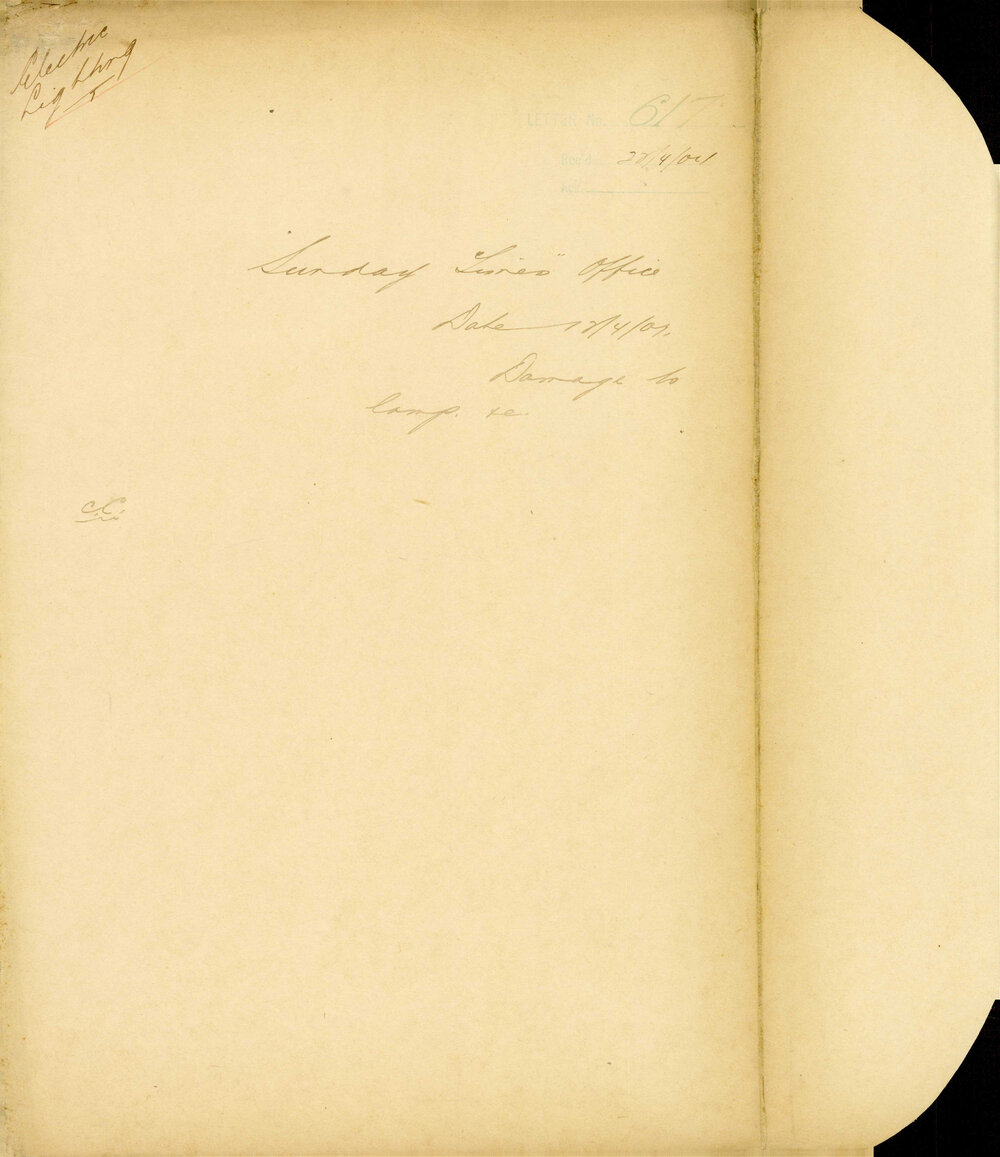 Electric
Lighting
LETTER No. 617
Rec'd 22/4/04
Ack
Sunday "Times" Office
Date 12/4/04.
Damage to
lamp. &c.